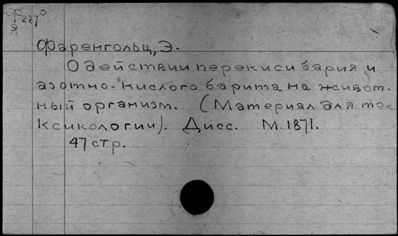 Ф227
Фаренгольц, Э.
О действии перекиси бария и
азотно-кислого барита на живот-
ный организм. (Материал для то-
ксикологии). Дисс. М. 1871.
47 стр.